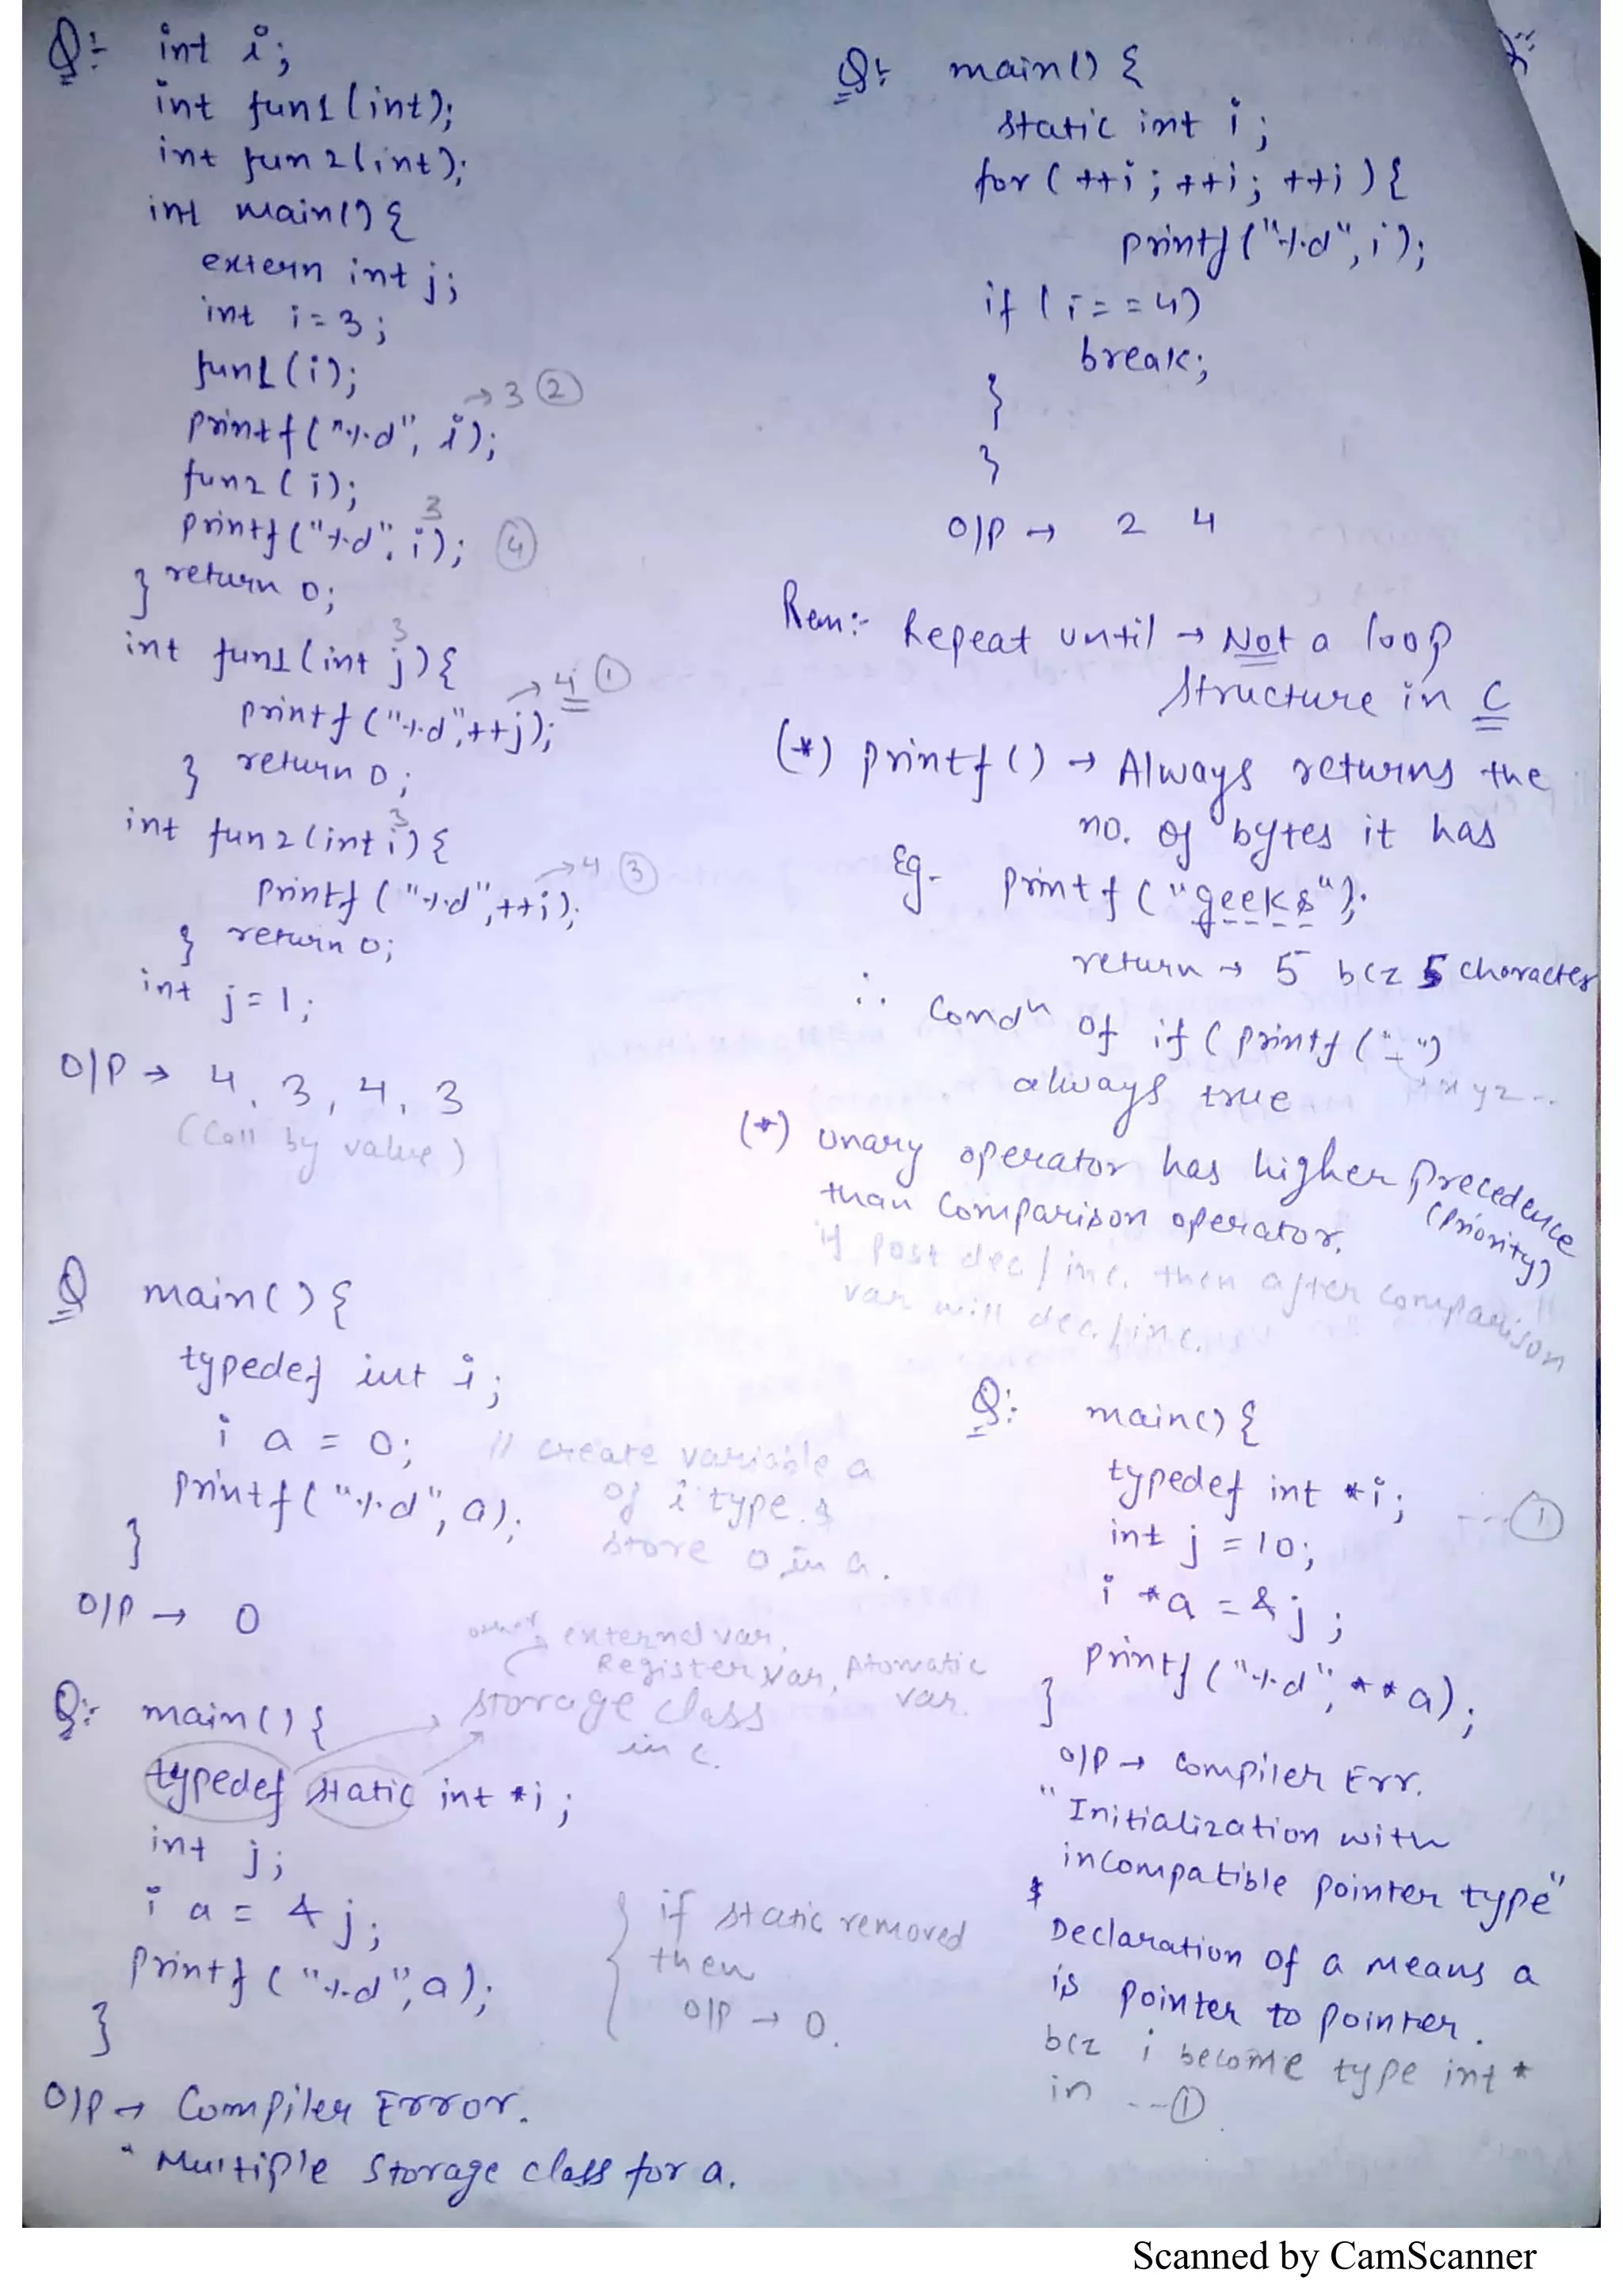 Q:- int i;
int fun1(int);
int fun2(int);
int main(){
extern int j;
int i=3;
fun1(i);
→3 ②
printf("%d", i);
fun2(i);
3
printf("%d", i); ④
return 0;
}
3
int fun1(int j){
→4 ①
printf("%d",++j);
return 0;
}
3
int fun2(int i){
→4 ③
printf("%d",++i);
return 0;
}
int j=1;
O/P → 4, 3, 4, 3
(Call by value)
Q main(){
typedef int i;
i a = 0; // create variable a
of i type. &
store 0 in a.
printf("%d", a);
}
O/P → 0
Q:- main(){
typedef static int *i;
int j;
i a = & j;
printf("%d", a);
}
other external var,
Register var, Atomatic
var.
storage class
in c.
if static removed
then
O/P → 0.
O/P → Compiler Error.
" Multiple Storage class for a.
Q:- main(){
static int i;
for(++i; ++i; ++i){
printf("%d", i);
if(i==4)
break;
}
}
O/P → 2 4
Rem:- Repeat until → Not a loop
structure in C
(*) printf() → Always returns the
no. of bytes it has
Eg- printf("geeks");
return → 5 bcz 5 character
∴ Condn of if(printf("-")
xyz..
always true
(*) unary operator has higher precedence
(priority)
than Comparison operator.
if post dec/inc. then after comparison
var will dec./inc.
Q: main(){
typedef int *i; ---①
int j =10;
i *a =&j;
printf("%d", **a);
}
O/P → Compiler Err.
"Initialization with
incompatible pointer type"
&
Declaration of a means a
is pointer to pointer.
bcz i become type int *
in ---①
Scanned by CamScanner